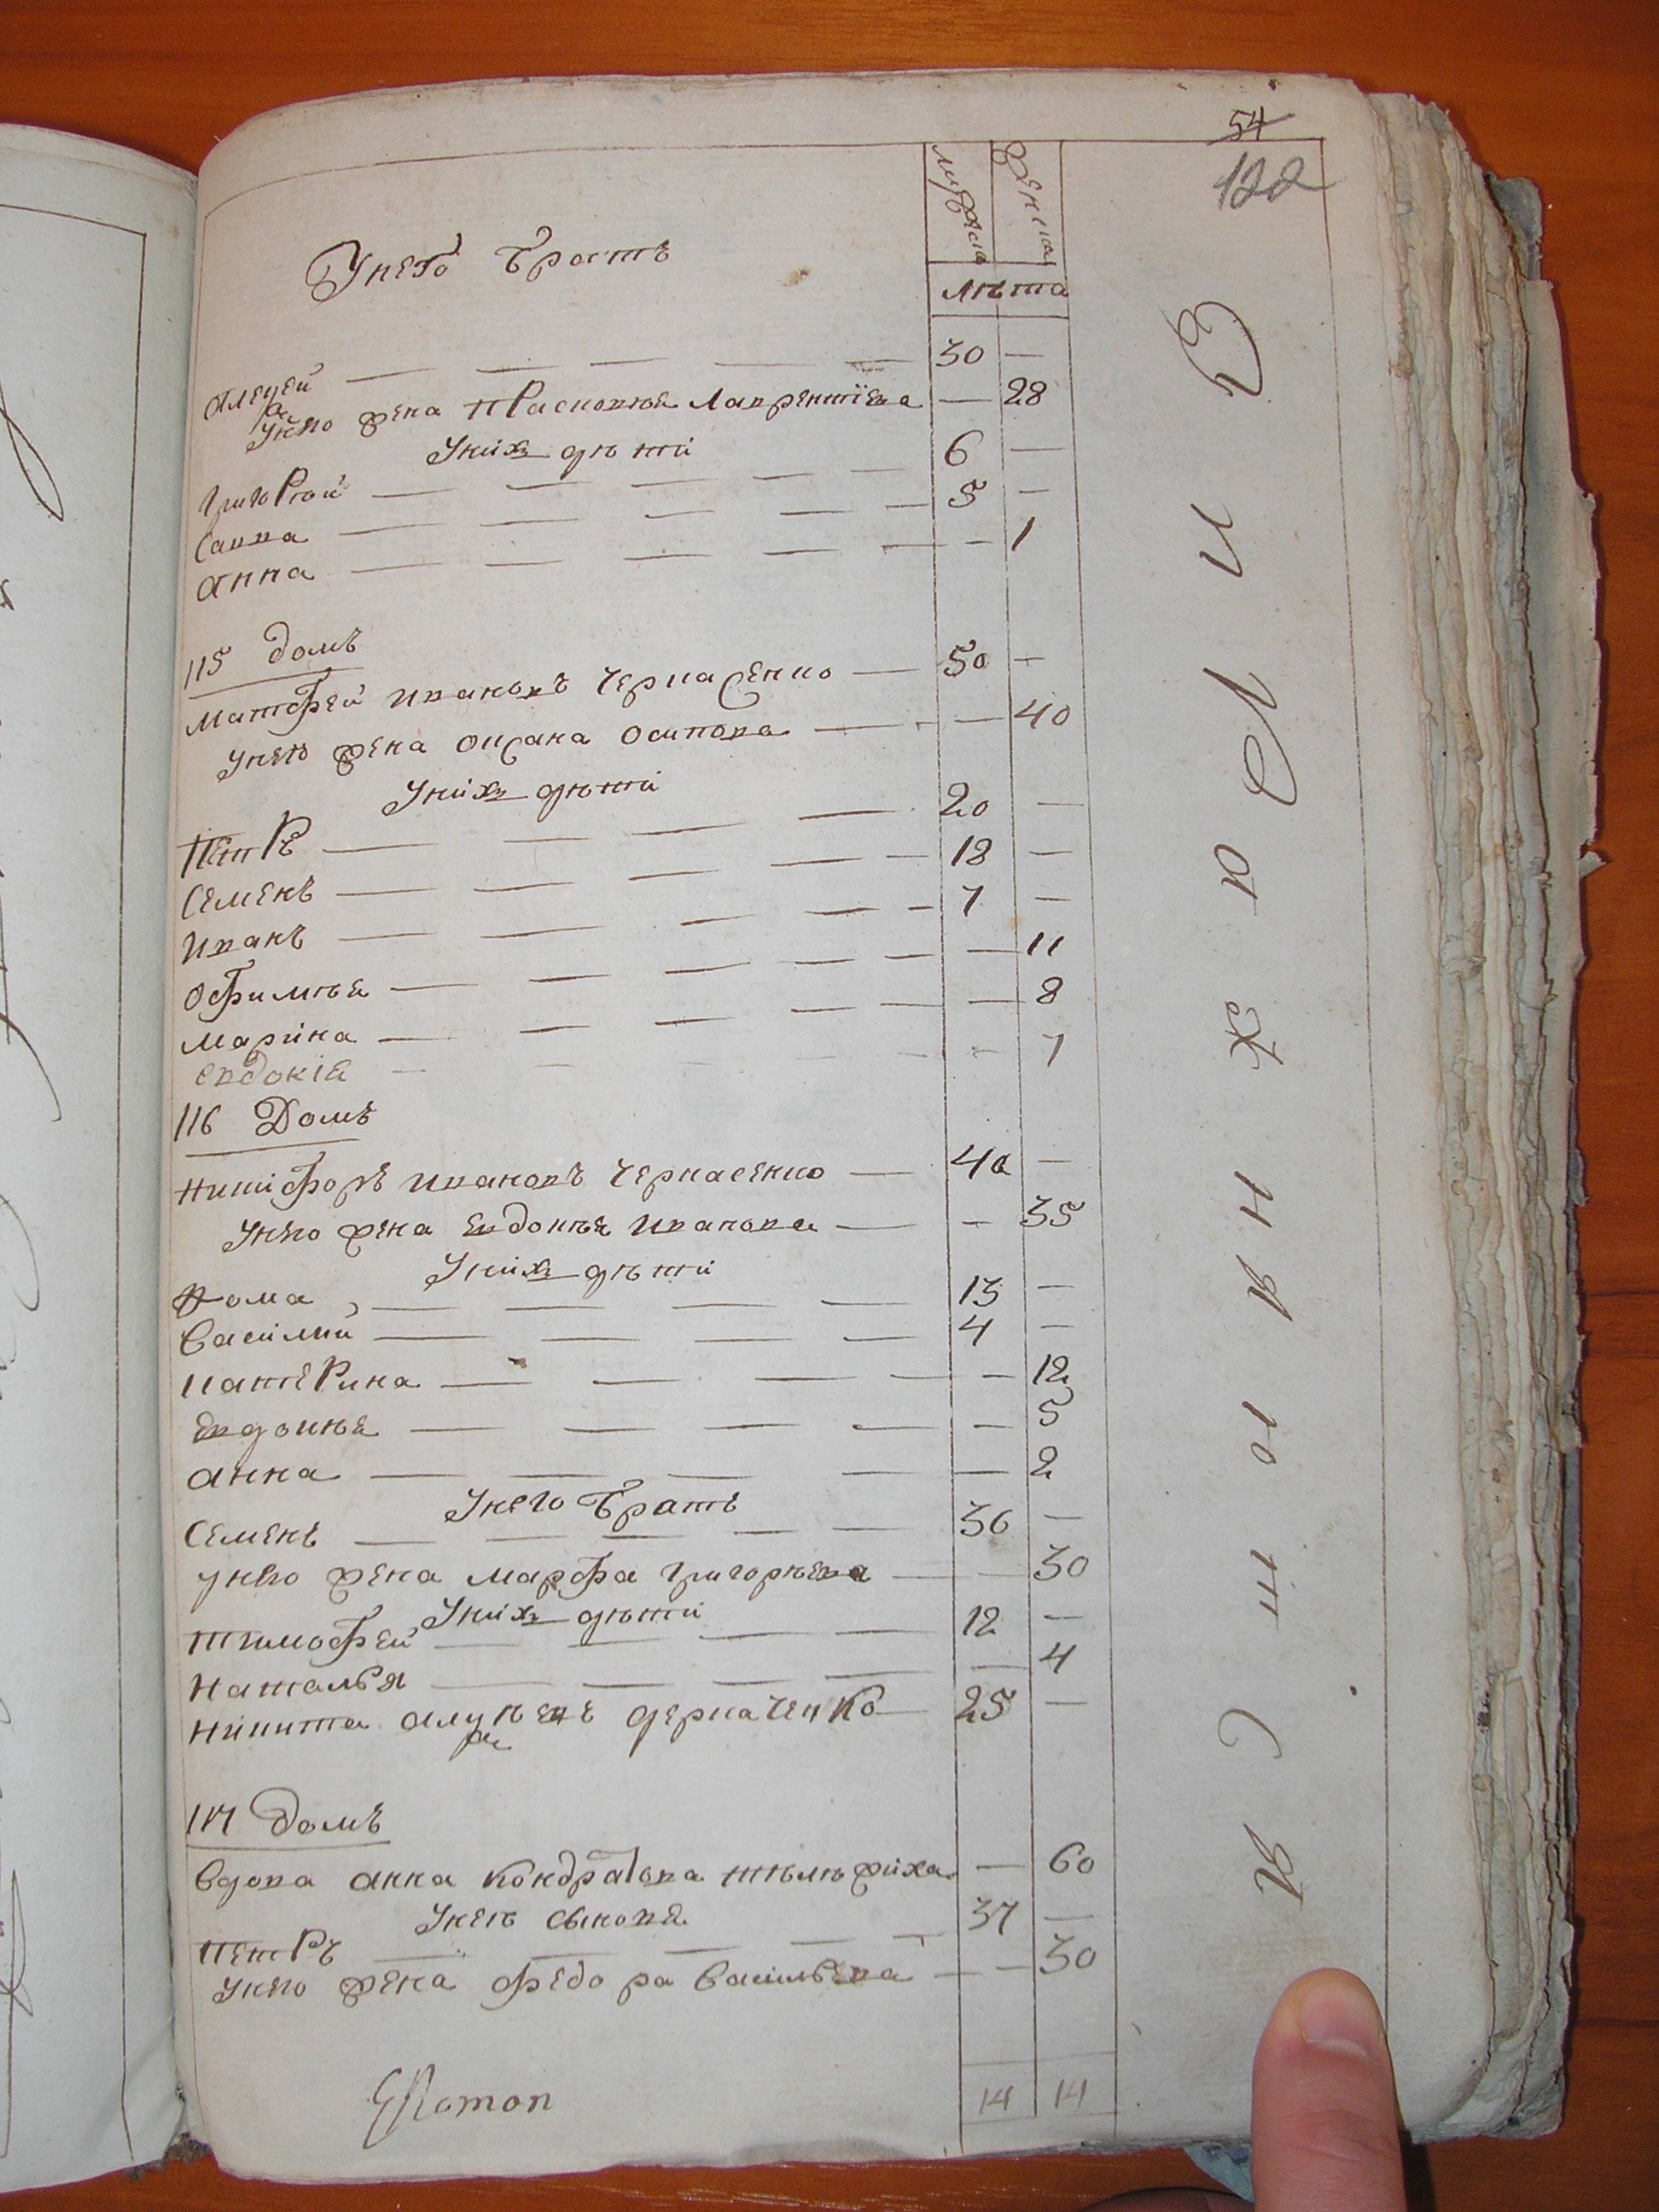 54
122
мужеска женска
лѣта
Унего братъ
алеѯей 30 —
Унего жена Прасковья Лаврентїева — 28
Уних дѣти
Григорїй 6 —
Савва 5 —
анна — 1
115 домъ
Матфей Ивановъ Черкасенко 50 —
Унего жена оксана осипова — 40
Уних дѣти
Петръ 20 —
Семенъ 18 —
Иванъ 7 —
офимья — 11
Марина — 8
евдокїя — 7
116 Домъ
Никифоръ Ивановъ Черкасенко 40 —
Унего жена Евдокья Иванова — 35
Уних дѣти
Фома 13 —
Василий 4 —
катерина — 12
Евдокья — 5
анна — 2
Унего братъ
Семенъ 36 —
унего жена марфа Григорьева — 30
Уних дѣти
Тимофей 12 —
Наталья — 4
Никита деркаченко 25 —
117 домъ
Вдова анна Кондратова — 60
Унея сыновя
Петръ 37 —
Унего жена федора Васильева — 30
14 14